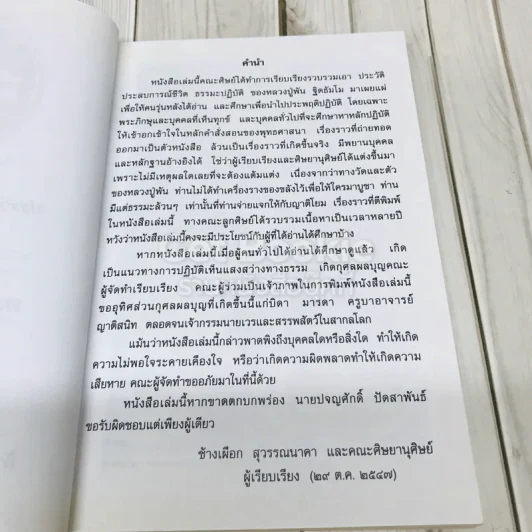 คำนำ
หนังสือเล่มนี้คณะศิษย์ได้ทำการเรียบเรียงรวบรวมเอา ประวัติ
ประสบการณ์ชีวิต ธรรมะปฏิบัติ ของหลวงปู่พัน ฐิตธัมโม มาเผยแผ่
เพื่อให้คนรุ่นหลังได้อ่าน และศึกษาเพื่อนำไปประพฤติปฏิบัติ โดยเฉพาะ
พระภิกษุและบุคคลที่เห็นทุกข์ และบุคคลทั่วไปที่จะศึกษาหาหลักปฏิบัติ
ให้เข้าอกเข้าใจในหลักคำสั่งสอนของพุทธศาสนา เรื่องราวที่ถ่ายทอด
ออกมาเป็นตัวหนังสือ ล้วนเป็นเรื่องราวที่เกิดขึ้นจริง มีพยานบุคคล
และหลักฐานอ้างอิงได้ ใช่ว่าผู้เรียบเรียงและศิษยานุศิษย์ได้แต่งขึ้นมา
เพราะไม่มีเหตุผลใดเลยที่จะต้องแต้มแต่ง เนื่องจากว่าทางวัดและตัว
ของหลวงปู่พัน ท่านไม่ได้ทำเครื่องรางของขลังไว้เพื่อให้ใครมาบูชา ท่าน
มีแต่ธรรมะล้วนๆ เท่านั้นที่ท่านจ่ายแจกให้กับญาติโยม เรื่องราวที่ตีพิมพ์
ในหนังสือเล่มนี้ ทางคณะลูกศิษย์ได้รวบรวมเนื้อหาเป็นเวลาหลายปี
หวังว่าหนังสือเล่มนี้คงจะมีประโยชน์กับผู้ที่ได้อ่านได้ศึกษาบ้าง
หากหนังสือเล่มนี้เมื่อผู้คนทั่วไปได้อ่านได้ศึกษาดูแล้ว เกิด
เป็นแนวทางการปฏิบัติเห็นแสงสว่างทางธรรม เกิดกุศลผลบุญคณะ
ผู้จัดทำเรียบเรียง คณะผู้ร่วมเป็นเจ้าภาพในการพิมพ์หนังสือเล่มนี้
ขออุทิศส่วนกุศลผลบุญที่เกิดขึ้นนี้แก่บิดา มารดา ครูบาอาจารย์
ญาติสนิท ตลอดจนเจ้ากรรมนายเวรและสรรพสัตว์ในสากลโลก
แม้นว่าหนังสือเล่มนี้กล่าวพาดพิงถึงบุคคลใดหรือสิ่งใด ทำให้เกิด
ความไม่พอใจระคายเคืองใจ หรือว่าเกิดความผิดพลาดทำให้เกิดความ
เสียหาย คณะผู้จัดทำขออภัยมาในที่นี้ด้วย
หนังสือเล่มนี้หากขาดตกบกพร่อง นายปจญศักดิ์ ปัดสาพันธ์
ขอรับผิดชอบแต่เพียงผู้เดียว
ช้างเผือก สุวรรณนาคา และคณะศิษยานุศิษย์
ผู้เรียบเรียง (๒๙ ต.ค. ๒๕๔๗)